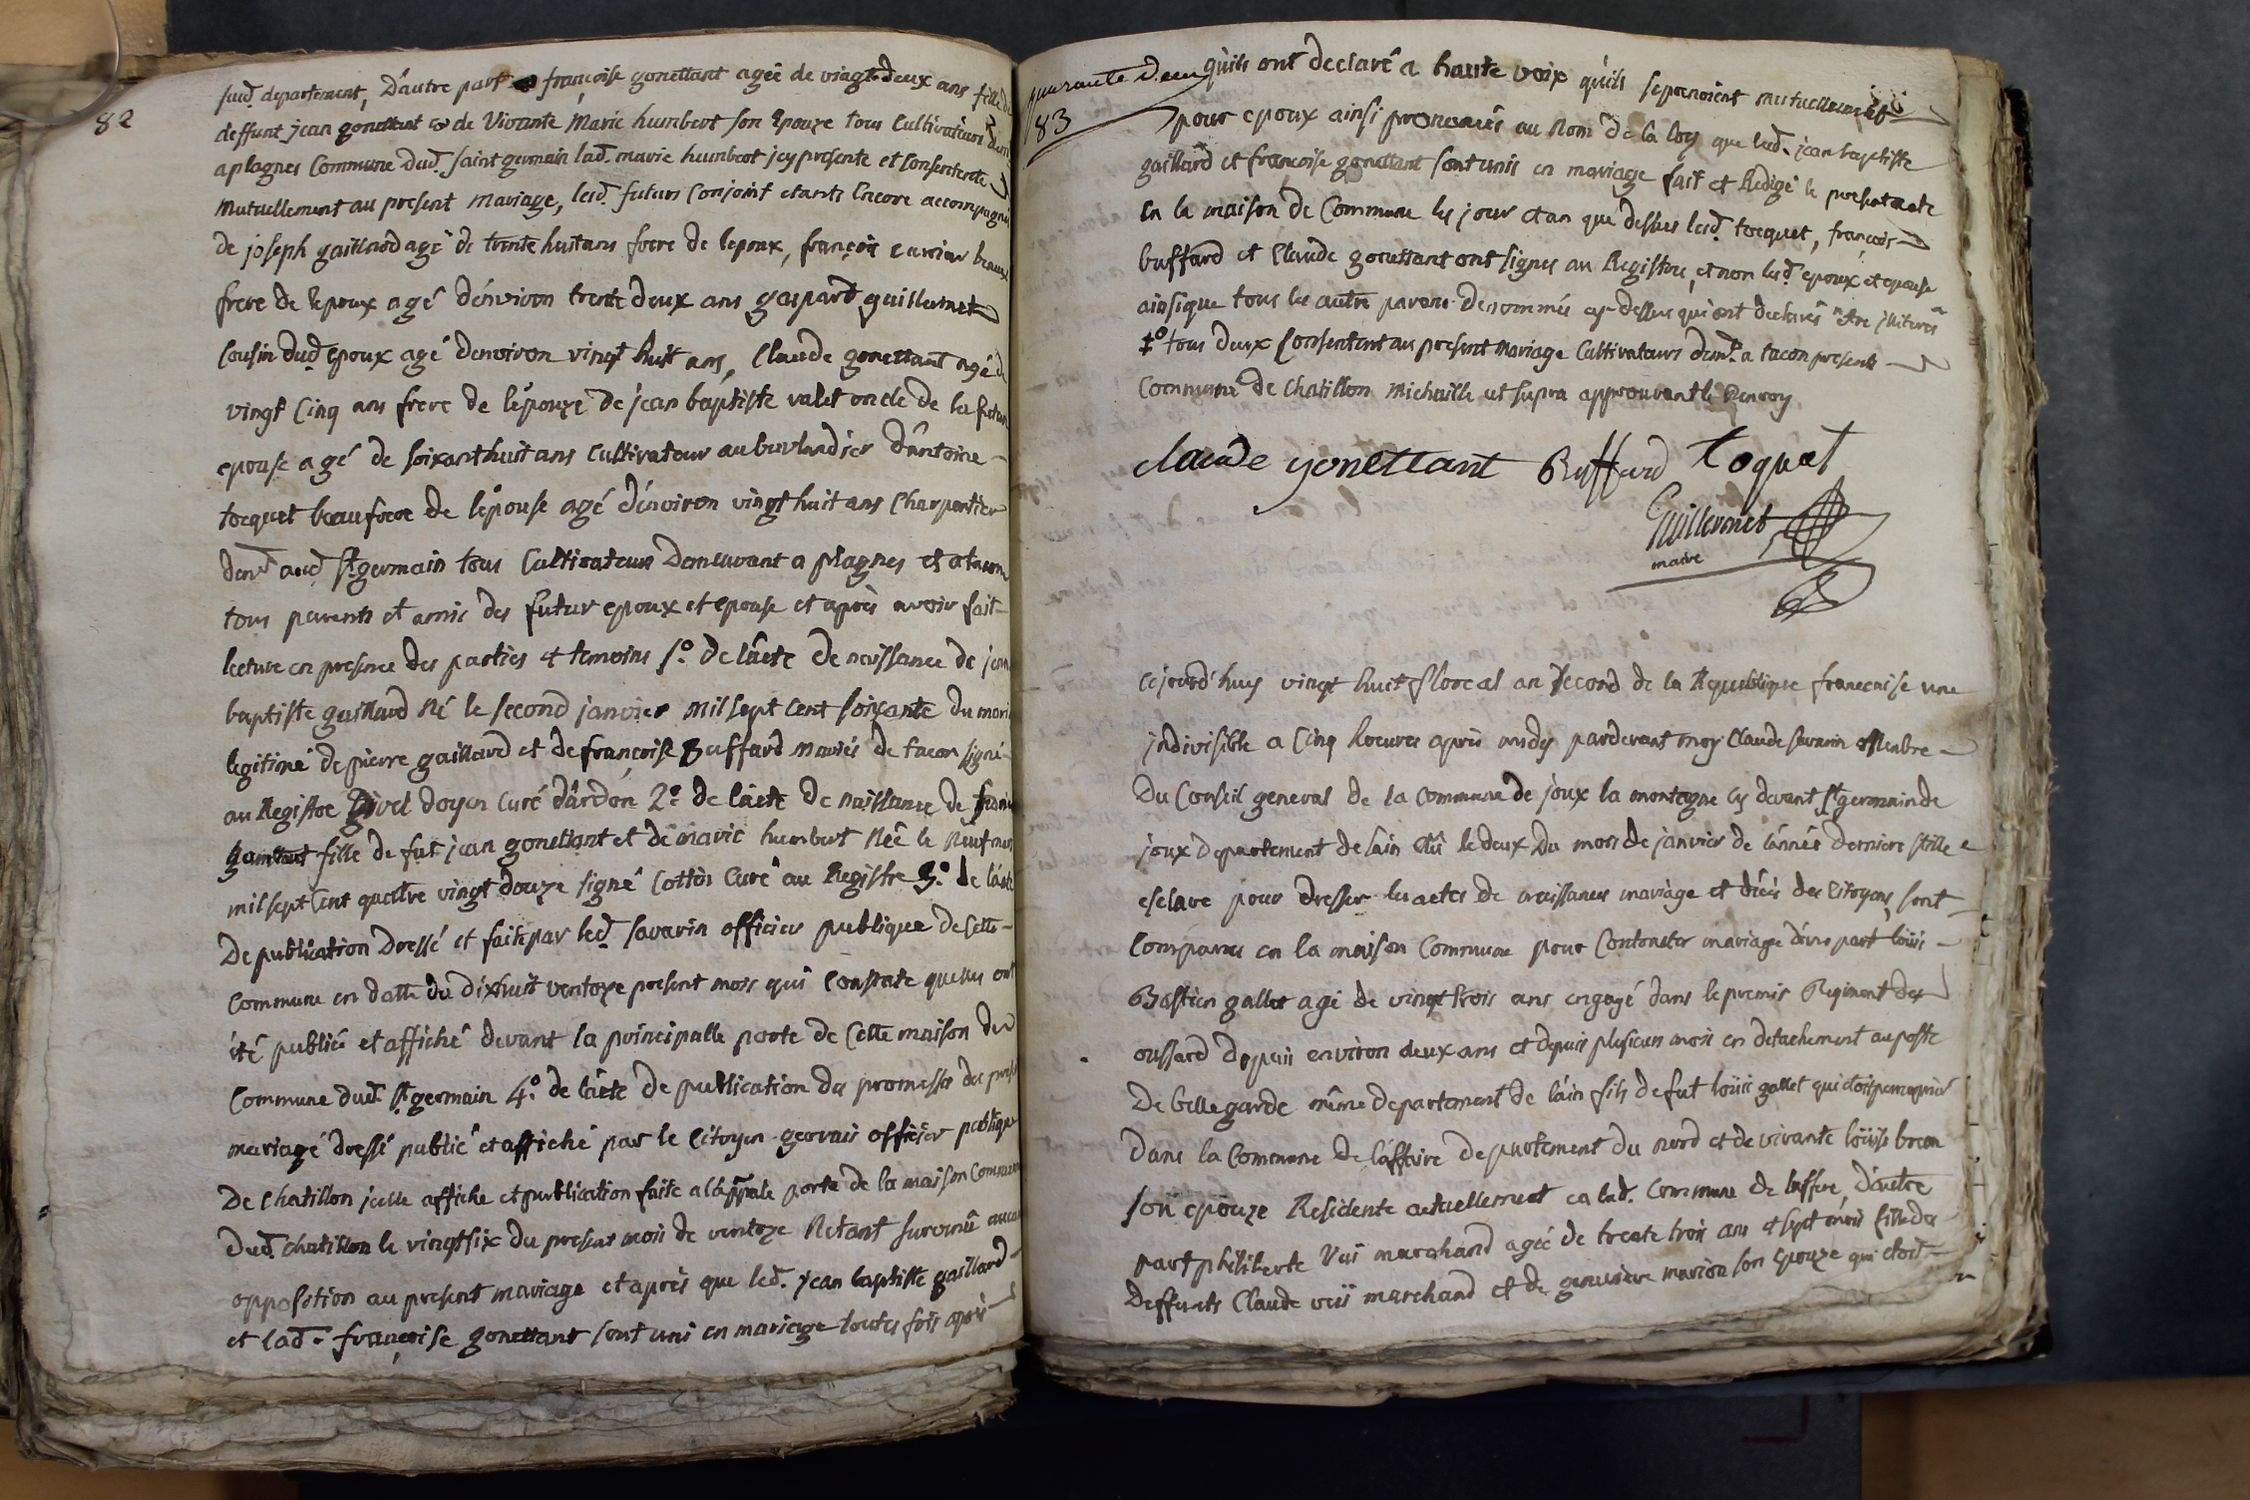 82
sud. departement, D'autre part françoise gonettant ageé de vingt deux ans fille de
deffunt jean gonettant et de Vivante Marie humbert son Epouze tous Cultivateurs
a plagnes Commune dud. saint germain lad. marie humbert jcy presente et Consentente
mutuellement au present mariage, lesd. futurs Conjoint etants Encore accompagné
de joseph gaillard agé de trente huit ans frere de lepoux, françois beaux
frere de lepoux agé d'énviron trente deux ans gaspard guillermet
Cousin dud. epoux agé denviron vingt huit ans, Claude gonettant agé de
vingt Cinq ans frere de lépouze de jean baptiste valet oncle de la future
epouse agé de soixanthuit ans Cultivateur au burlandier d'ântoine
tocquet beaufrere de lépouse agé d'énviron vingt huit ans Charpentier
dem.t aud. St. germain tous Cultivateurs Demeurant a plagnes et a tacon
tous parents et amis des futur epoux et epouse et après avoir fait
lecture en presence des parties et temoins 1.º de lâcte de naissance de jean
baptiste gaillard Né le second janvier mil sept cent soixante du mariage
legitime de pierre gaillard et de françoise Buffard mariés de tacon signé
au Registre doyen Curé dârdon 2.º de lâcte de naissance de
gonettant fille de fut jean gonettant et de marie humbert Née le Neuf
mil sept Cent quattre vingt douze signé Cottin Curé au Registre 3.º de lácte
De publication Dressé et faite par led. savarin officier publique de Cette
Commune en datte du dixhuit ventoze present mois qui Constate quelles ont
été publié et affiché devant la principalle porte de Cette maison de
Commune dud. St. germain 4.º de lâcte de publication da promesse du present
mariagé dressé publié et affiché par le Citoyen gervais officier publique
De Chatillon jcelle affiche et publication faite a la ppale porte de la maison Commune
dud. Chatillon le vingtsix du present mois de ventoze Nétant survenû aucune
opposition au present mariage et après que led. jean baptiste gaillard
et lad. françoise gonettant sont uni en mariage toutes fois après
quarante deux
83
qu'ils ont declaré a haute voix qu'ils seprenoient mutuellement
pour epoux ainsi prononcés au Nom de la loy que led. jean baptiste
gaillard et françoise gonettant sont unis en mariage fait et Redigé le present acte
en la maison de Commune les jour et an que dessus lesd. tocquet, françois
buffard et Claude gonettant ont signes au Registre, et non lesd. epoux et epouse
ainsique tous les autre parens denommés cy-dessus qui ont declarés être jllitérés
1º tous deux Consentent au present mariage Cultivateurs dem.t a tacon presente
Commune de Chatillon Michaille ut supra approuvant le Renvoy
claude gonettant Buffard toquet
Guillermet
maire
Cejourd'huy vingt huit floreal an second de la Republique françaaise une
jndivisible a Cinq heures après midy pardevant moy Claude savarin Membre
Du Conseil general de la Commune de joux la montagne cy devant St. germain de
joux departement de lain élû le deux Du mois de janvier de lánnée derniere stille
esclave pour dresser les actes de naissances mariage et décès des Citoyens, sont
Comparus en la maison Commune pour Contracter mariage d'une part loüis
Bastien gallet agé de vingt trois ans engagé dans le premier Regiment des
oussard depuis environ deux ans et depuis plusieurs mois en detachement au poste
De bellegarde même departement de láin fils de fut loüis gallet qui étoit
dans la Commune de Laffaire departement du nord et de vivante loüise
son epouze Residente actuellement en lad. Commune de laffere, d'autre
part philiberte Vüi marchand agée de trente trois ans et sept mois fille des
Deffunts Claude vüi marchand et de genevieve marion son Epouze qui etoit